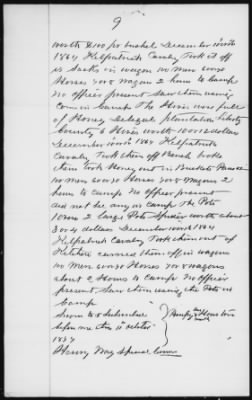 9
worth $1.00 per bushel December month
1864 Kilpatricks Cavalry Took it off
in Sacks in wagon no men
Horses 7 or 8 wagon 2 hour to Camp
no officer present Saw them using
Corn in Camp The Hives were full
of Honey Delegal plantation Liberty
County 6 Hives worth 10 or 12 dollars
December month 1864 Kilpatricks
Cavalry Took them off broke
them Took Honey out in Buckets
no men Horses 7 or 8 wagons 2
hour to Camp no officer present
did not see any in Camp The Pots
2 large Pots worth about
3 or 4 dollars December month 1864
Kilpatricks Cavalry Took them out of
Kitchen carried them off in wagon
no men Horses 7 or 8 wagons
about 2 Hours to Camp no officer
present Saw them using the Pots in
Camp
Sworn to & Subscribed
before me this 11 October
1877
Henry Way Special Comr